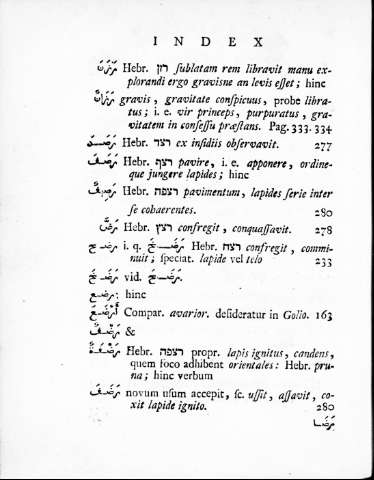 I N D E X
رَزَنَ Hebr. רזן ſublatam rem libravit manu ex-
plorandi ergo gravisne an levis eſſet; hinc
gravis, gravitate conſpicuus, probe libra-
tus; i. e. vir princeps, purpuratus, gra-
vitatem in conſeſſu præſtans. Pag. 333-334
رَصَـد Hebr. רצד ex inſidiis obſervavit. 277
رَصَـفَ Hebr. רצף pavire, i. e. apponere, ordine-
que jungere lapides; hinc
Hebr. רצפה pavimentum, lapides ſerie inter
ſe cohaerentes. 280
رَضَّ Hebr. רצץ confregit, conquaſſavit. 278
رَضَـحَ i. q. رَضَـخَ Hebr. רצח confregit, commi-
nuit; ſpeciat. lapide vel telo 233
رَضَـخَ vid. رَضَـحَ.
رَضَـع; hinc
أَرْضَـعُ Compar. avarior. deſideratur in Golio. 163
رَضْـفٌ &
رَضْـفَةٌ Hebr. רצפה propr. lapis ignitus, candens,
quem foco adhibent orientales: Hebr. pru-
na; hinc verbum
رَضَـفَ novum uſum accepit, ſc. uſſit, aſſavit, co-
xit lapide ignito. 280